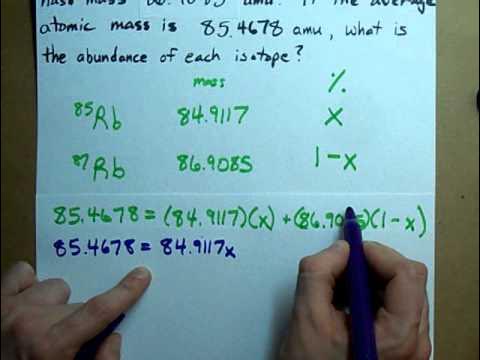 mass 86.9085 amu. If the average
atomic mass is 85.4678 amu, what is
the abundance of each isotope?
mass %
85Rb 84.9117 X
87Rb 86.9085 1-x
85.4678 = (84.9117)(x) + (86.9085)(1-x)
85.4678 = 84.9117x